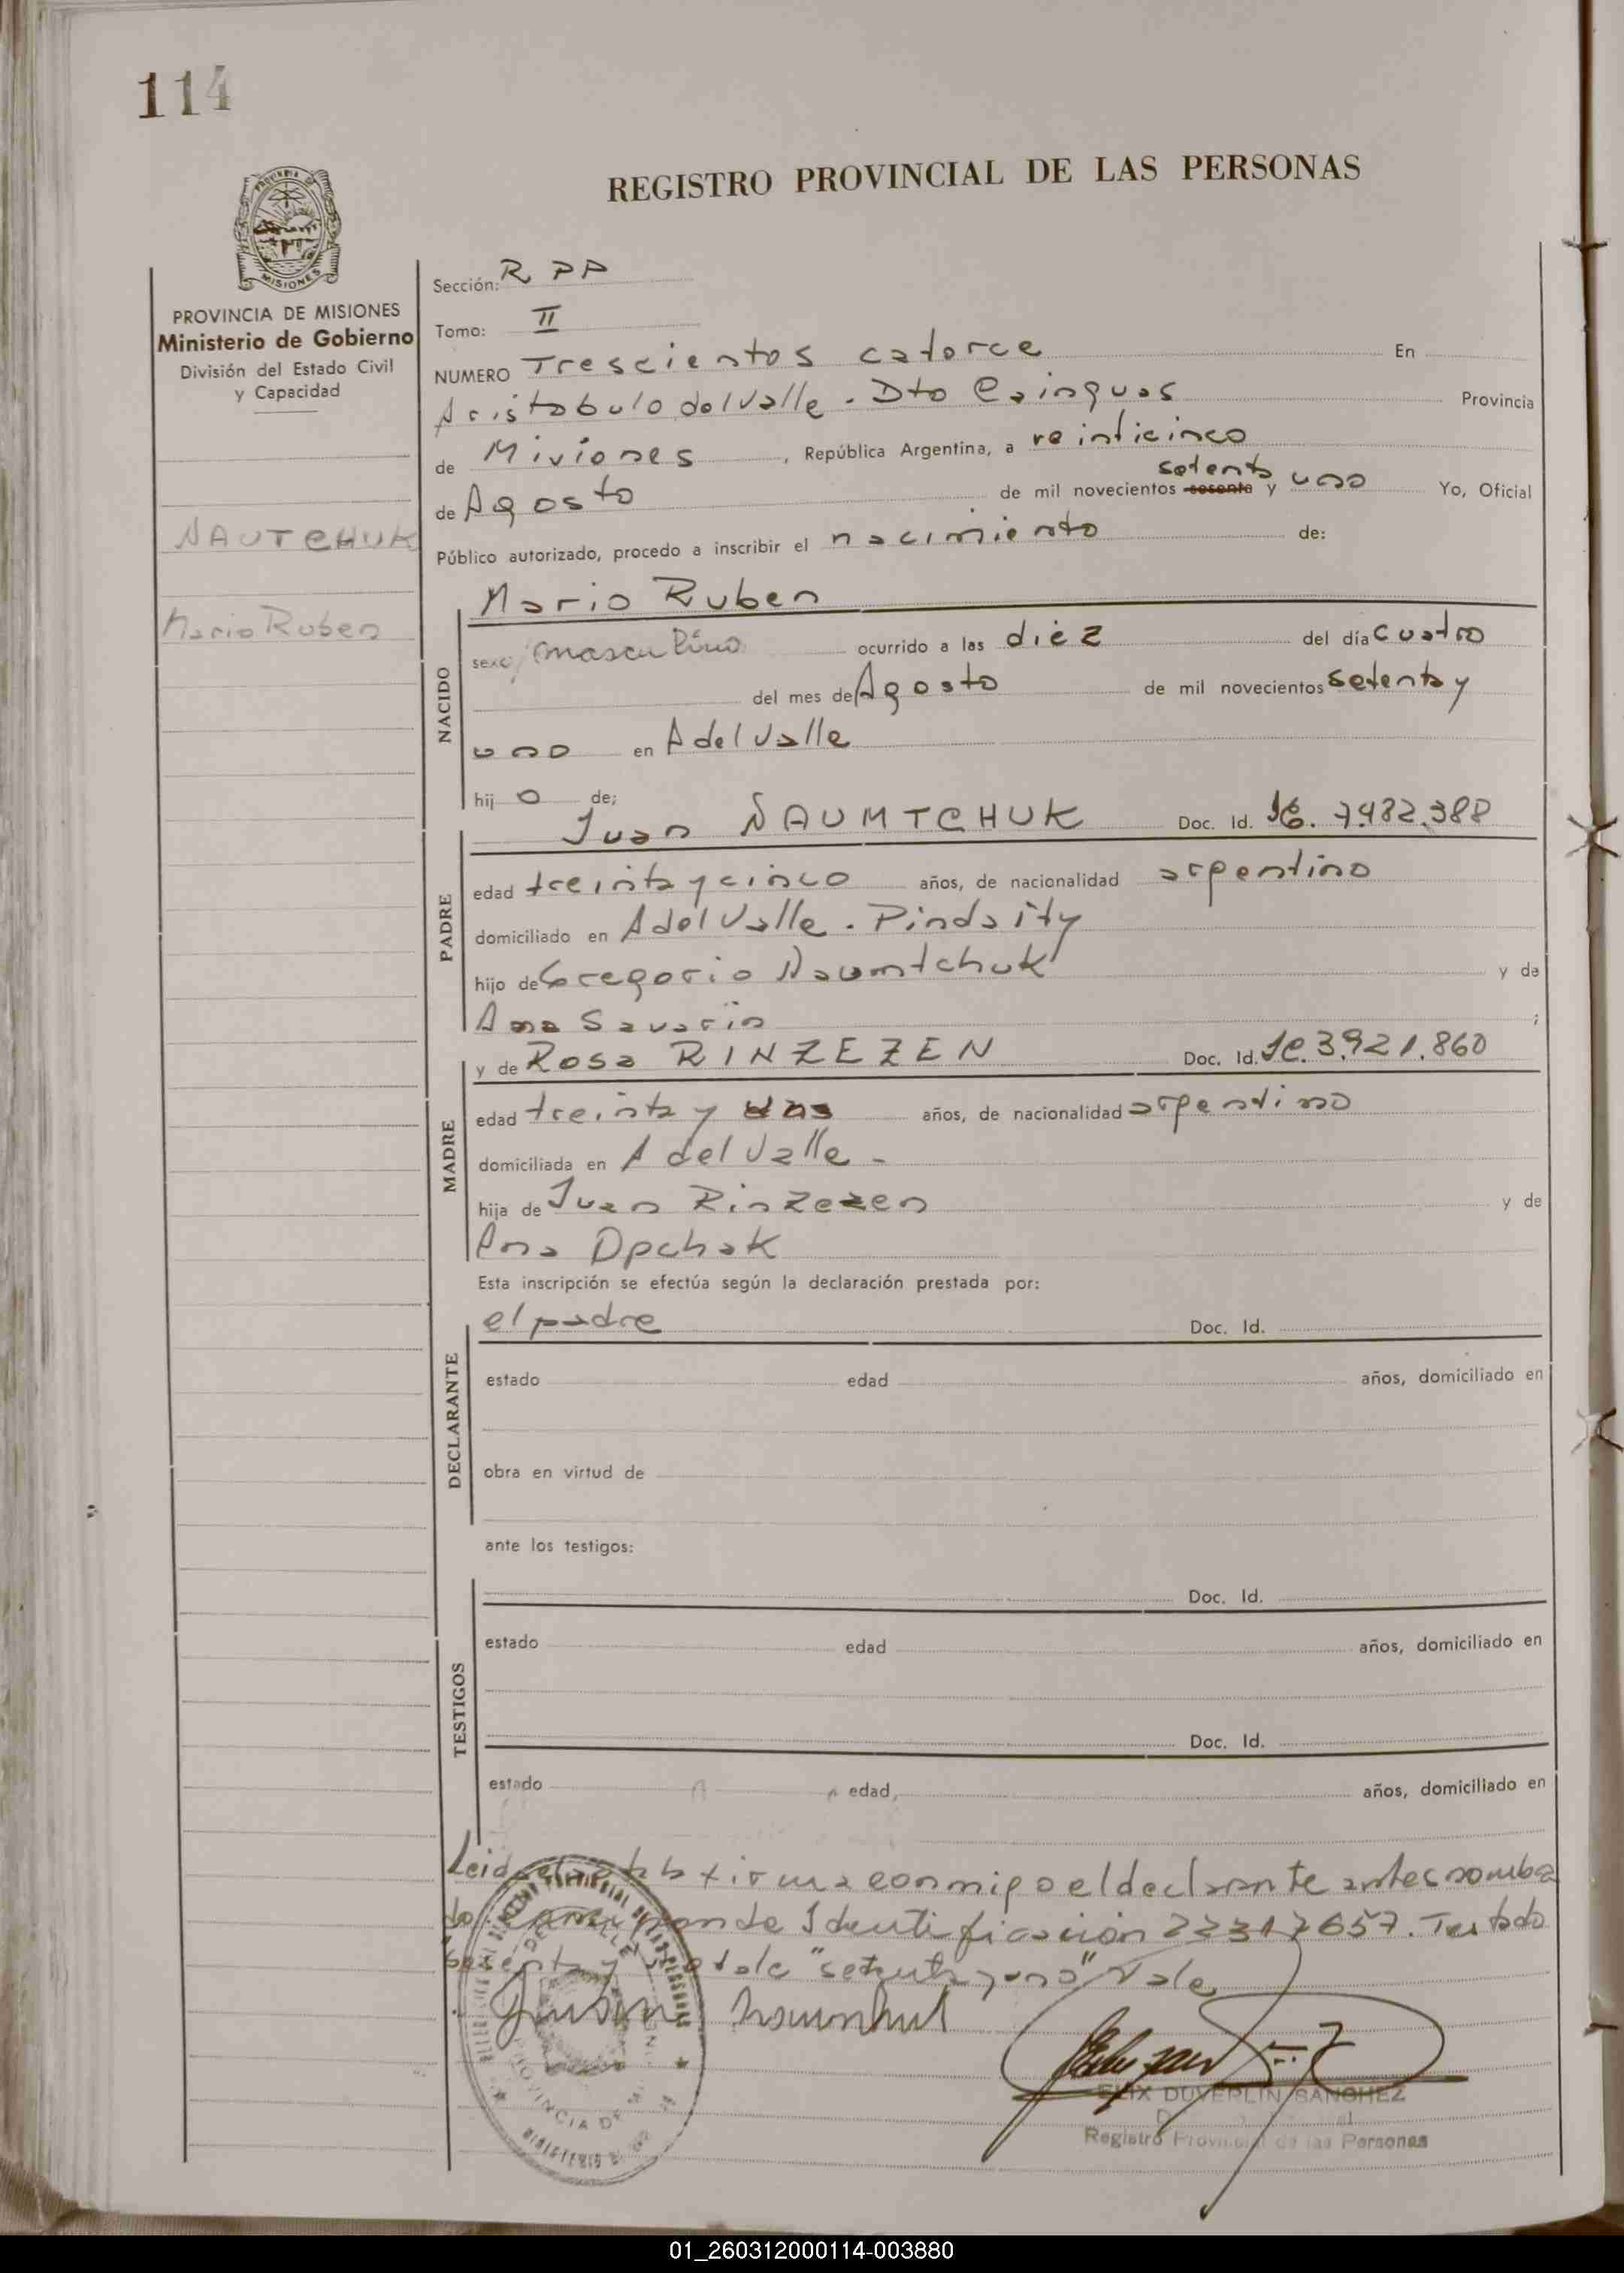 114
REGISTRO PROVINCIAL DE LAS PERSONAS
PROVINCIA DE MISIONES
Ministerio de Gobierno
División del Estado Civil
y Capacidad
NAUTCHUK
Mario Ruben
Sección: R P P
Tomo: II
NUMERO Trescientos catorce En
Aristobulo del Valle . Dto Cainguas Provincia
de Miviones, República Argentina, a veinticinco
setenta
de Agosto de mil novecientos sesenta y uno Yo, Oficial
Público autorizado, procedo a inscribir el nacimiento de:
Mario Ruben
NACIDO
sexo masculino ocurrido a las diez del día cuatro
del mes de Agosto de mil novecientos setenta y
uno en A del Valle
hij o de;
PADRE
Juan NAUMTCHUK Doc. Id. 7.482.388
edad treinta y cinco años, de nacionalidad argentino
domiciliado en A del Valle . Pindaity
hijo de Gregorio Naumtchuk y de
Ana Savarin ;
MADRE
y de Rosa RINZEZEN Doc. Id. 3.921.860
edad treinta y dos años, de nacionalidad argentino
domiciliada en A del Valle -
hija de Juan Rinzezen y de
Ana Opchak
Esta inscripción se efectúa según la declaración prestada por:
DECLARANTE
el padre Doc. Id.
estado edad años, domiciliado en
obra en virtud de
ante los testigos:
TESTIGOS
Doc. Id.
estado edad años, domiciliado en
Doc. Id.
estado edad años, domiciliado en
Leida el acta la firma conmigo el declarante antes nombra
do. Identificación 22317657. Testado
"sesenta y "setenta y uno" Vale
Juan
PROVINCIA DE
ELIX DUVERLIN SANCHEZ
Registro Provincial de las Personas
01_260312000114-003880